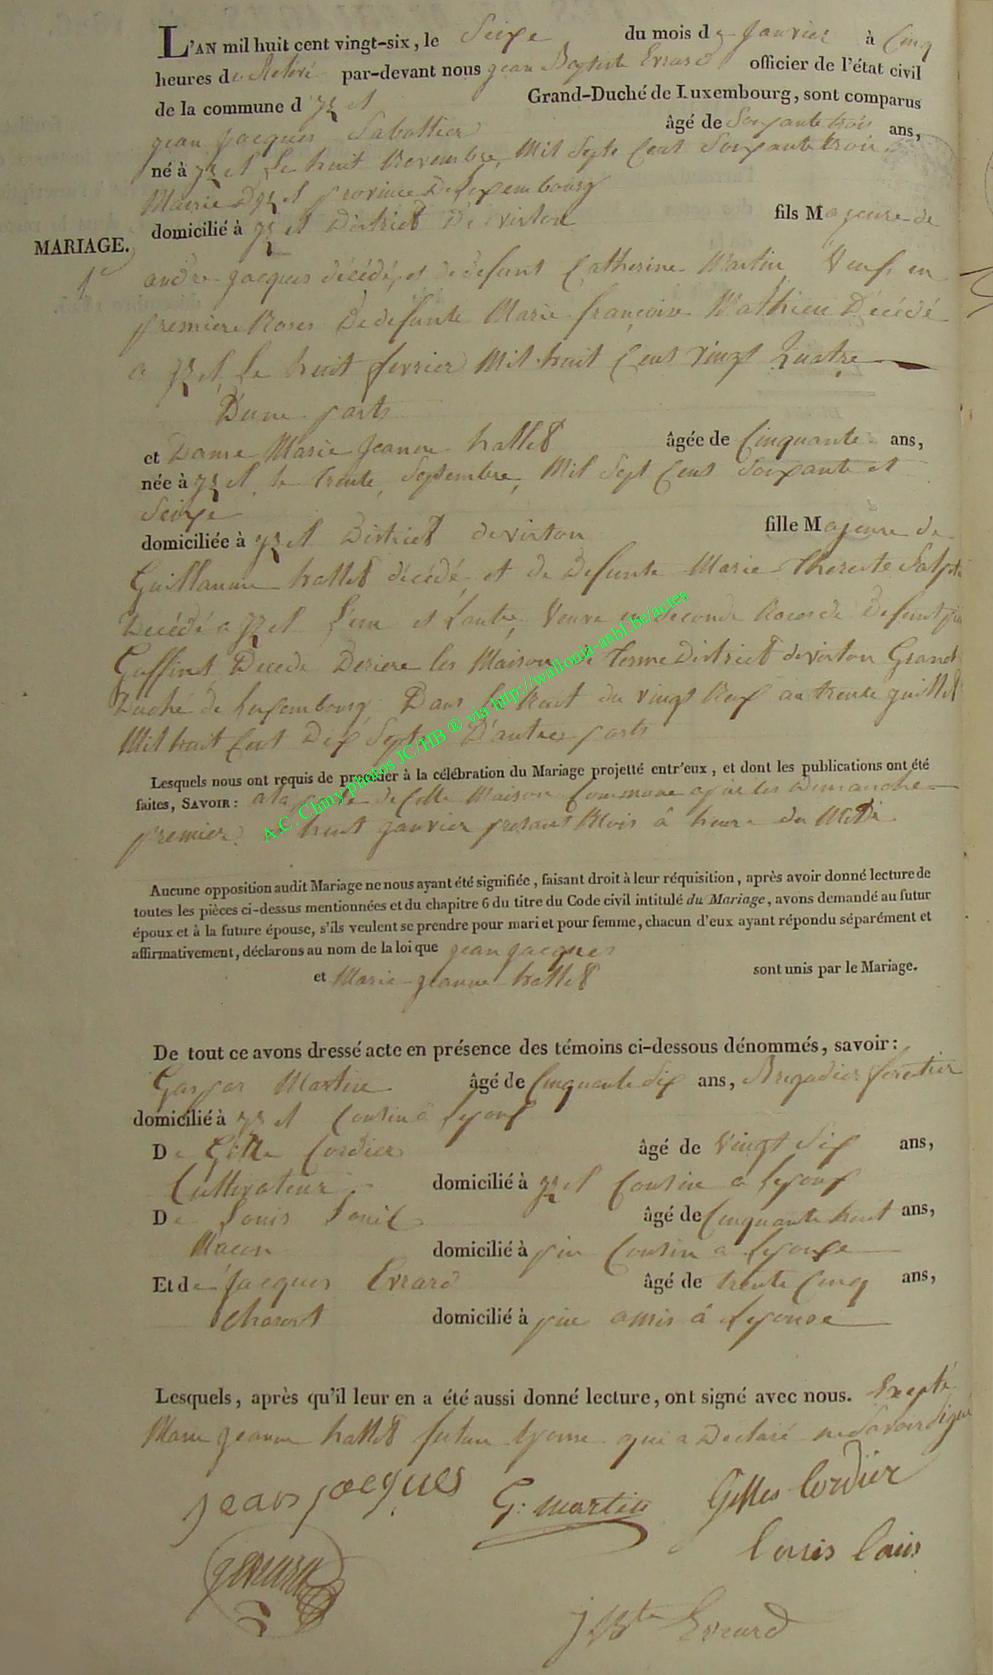 L'AN mil huit cent vingt-six, le Seize du mois de Janvier à Cinq
heures de Relevé par-devant nous jean Baptiste Evrard officier de l'état civil
de la commune d'Izel Grand-Duché de Luxembourg, sont comparus
jean jacques Sabottier âgé de Soixante trois ans,
né à Izel le huit Novembre Mil Septe Cent Soixante trois
Mairie D'Izel province De Luxembourg
domicilié à Izel District De virton fils Majeure de
MARIAGE.
andre jacques décédé, et de defunt Catherine Martin, Veuf en
premiere Noces De defunte Marie françoise Mathieu Décédé
a Izel, Le huit fevrier Mil huit Cent vingt Quatre
D'une parts
et Dame Marie Jeanne hallet âgée de Cinquante ans,
née à Izel, le trente Septembre, Mil Sept Cent Soixante et
Seize
domiciliée à Izel District de virton fille Majeure de
Guillaume hallet décédé, et de Defunte Marie Thereste
Décédé a Izel L'un et L'autre, Veuve en Seconde Noces de Defunt
Goffinet Décédé Deriere les Maison à Termes District de virton Grand
Duché de Luxembourg, Dans La Nuit du vingt Neuf au trente juillet
Mil huit Cent Dix Sept D'autres parts
Lesquels nous ont requis de procéder à la célébration du Mariage projetté entr'eux, et dont les publications ont été
faites, SAVOIR: a la porte de Cette Maison Commune après les Dimanche
premier et huit janvier présant Mois à heure de Midi
Aucune opposition audit Mariage ne nous ayant été signifiée, faisant droit à leur réquisition, après avoir donné lecture de
toutes les pièces ci-dessus mentionnées et du chapitre 6 du titre du Code civil intitulé du Mariage, avons demandé au futur
époux et à la future épouse, s'ils veulent se prendre pour mari et pour femme, chacun d'eux ayant répondu séparément et
affirmativement, déclarons au nom de la loi que jean jacques
et Marie jeanne hallet sont unis par le Mariage.
De tout ce avons dressé acte en présence des témoins ci-dessous dénommés, savoir:
Gaspar Martin âgé de Cinquante Six ans, Brigadier forestier
domicilié à Izel Cousin a Lepouf
De Gille Cordier âgé de Vingt Six ans,
Cultivateur domicilié à Izel Cousin a Lepouf
De Louis Louis âgé de Cinquante huit ans,
Macon domicilié à pin Cousin a Lepouse
Et de Jacques Evrard âgé de trente Cinq ans,
domicilié à pin amis à Lepouse
Lesquels, après qu'il leur en a été aussi donné lecture, ont signé avec nous. Exepté
Marie Jeanne hallet future Epouse qui a Déclaré ne Savoir Signé
jean jacques G: martin Gilles Cordier
Louis Louis
J Bte Evrard
A.C. Chiny photos JC/HB ® via http://wallonia-asbl.be/actes